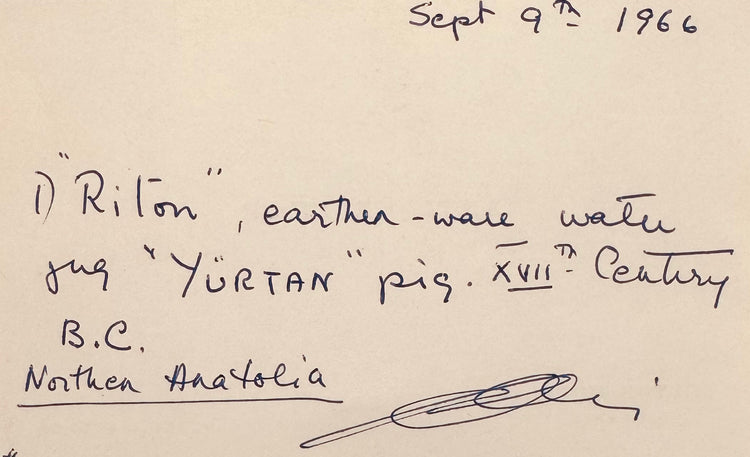 Sept 9th 1966
1) "Riton", earthen-ware water
jug "YÜRTAN" pig. XVIIth Century
B.C.
Northen Anatolia